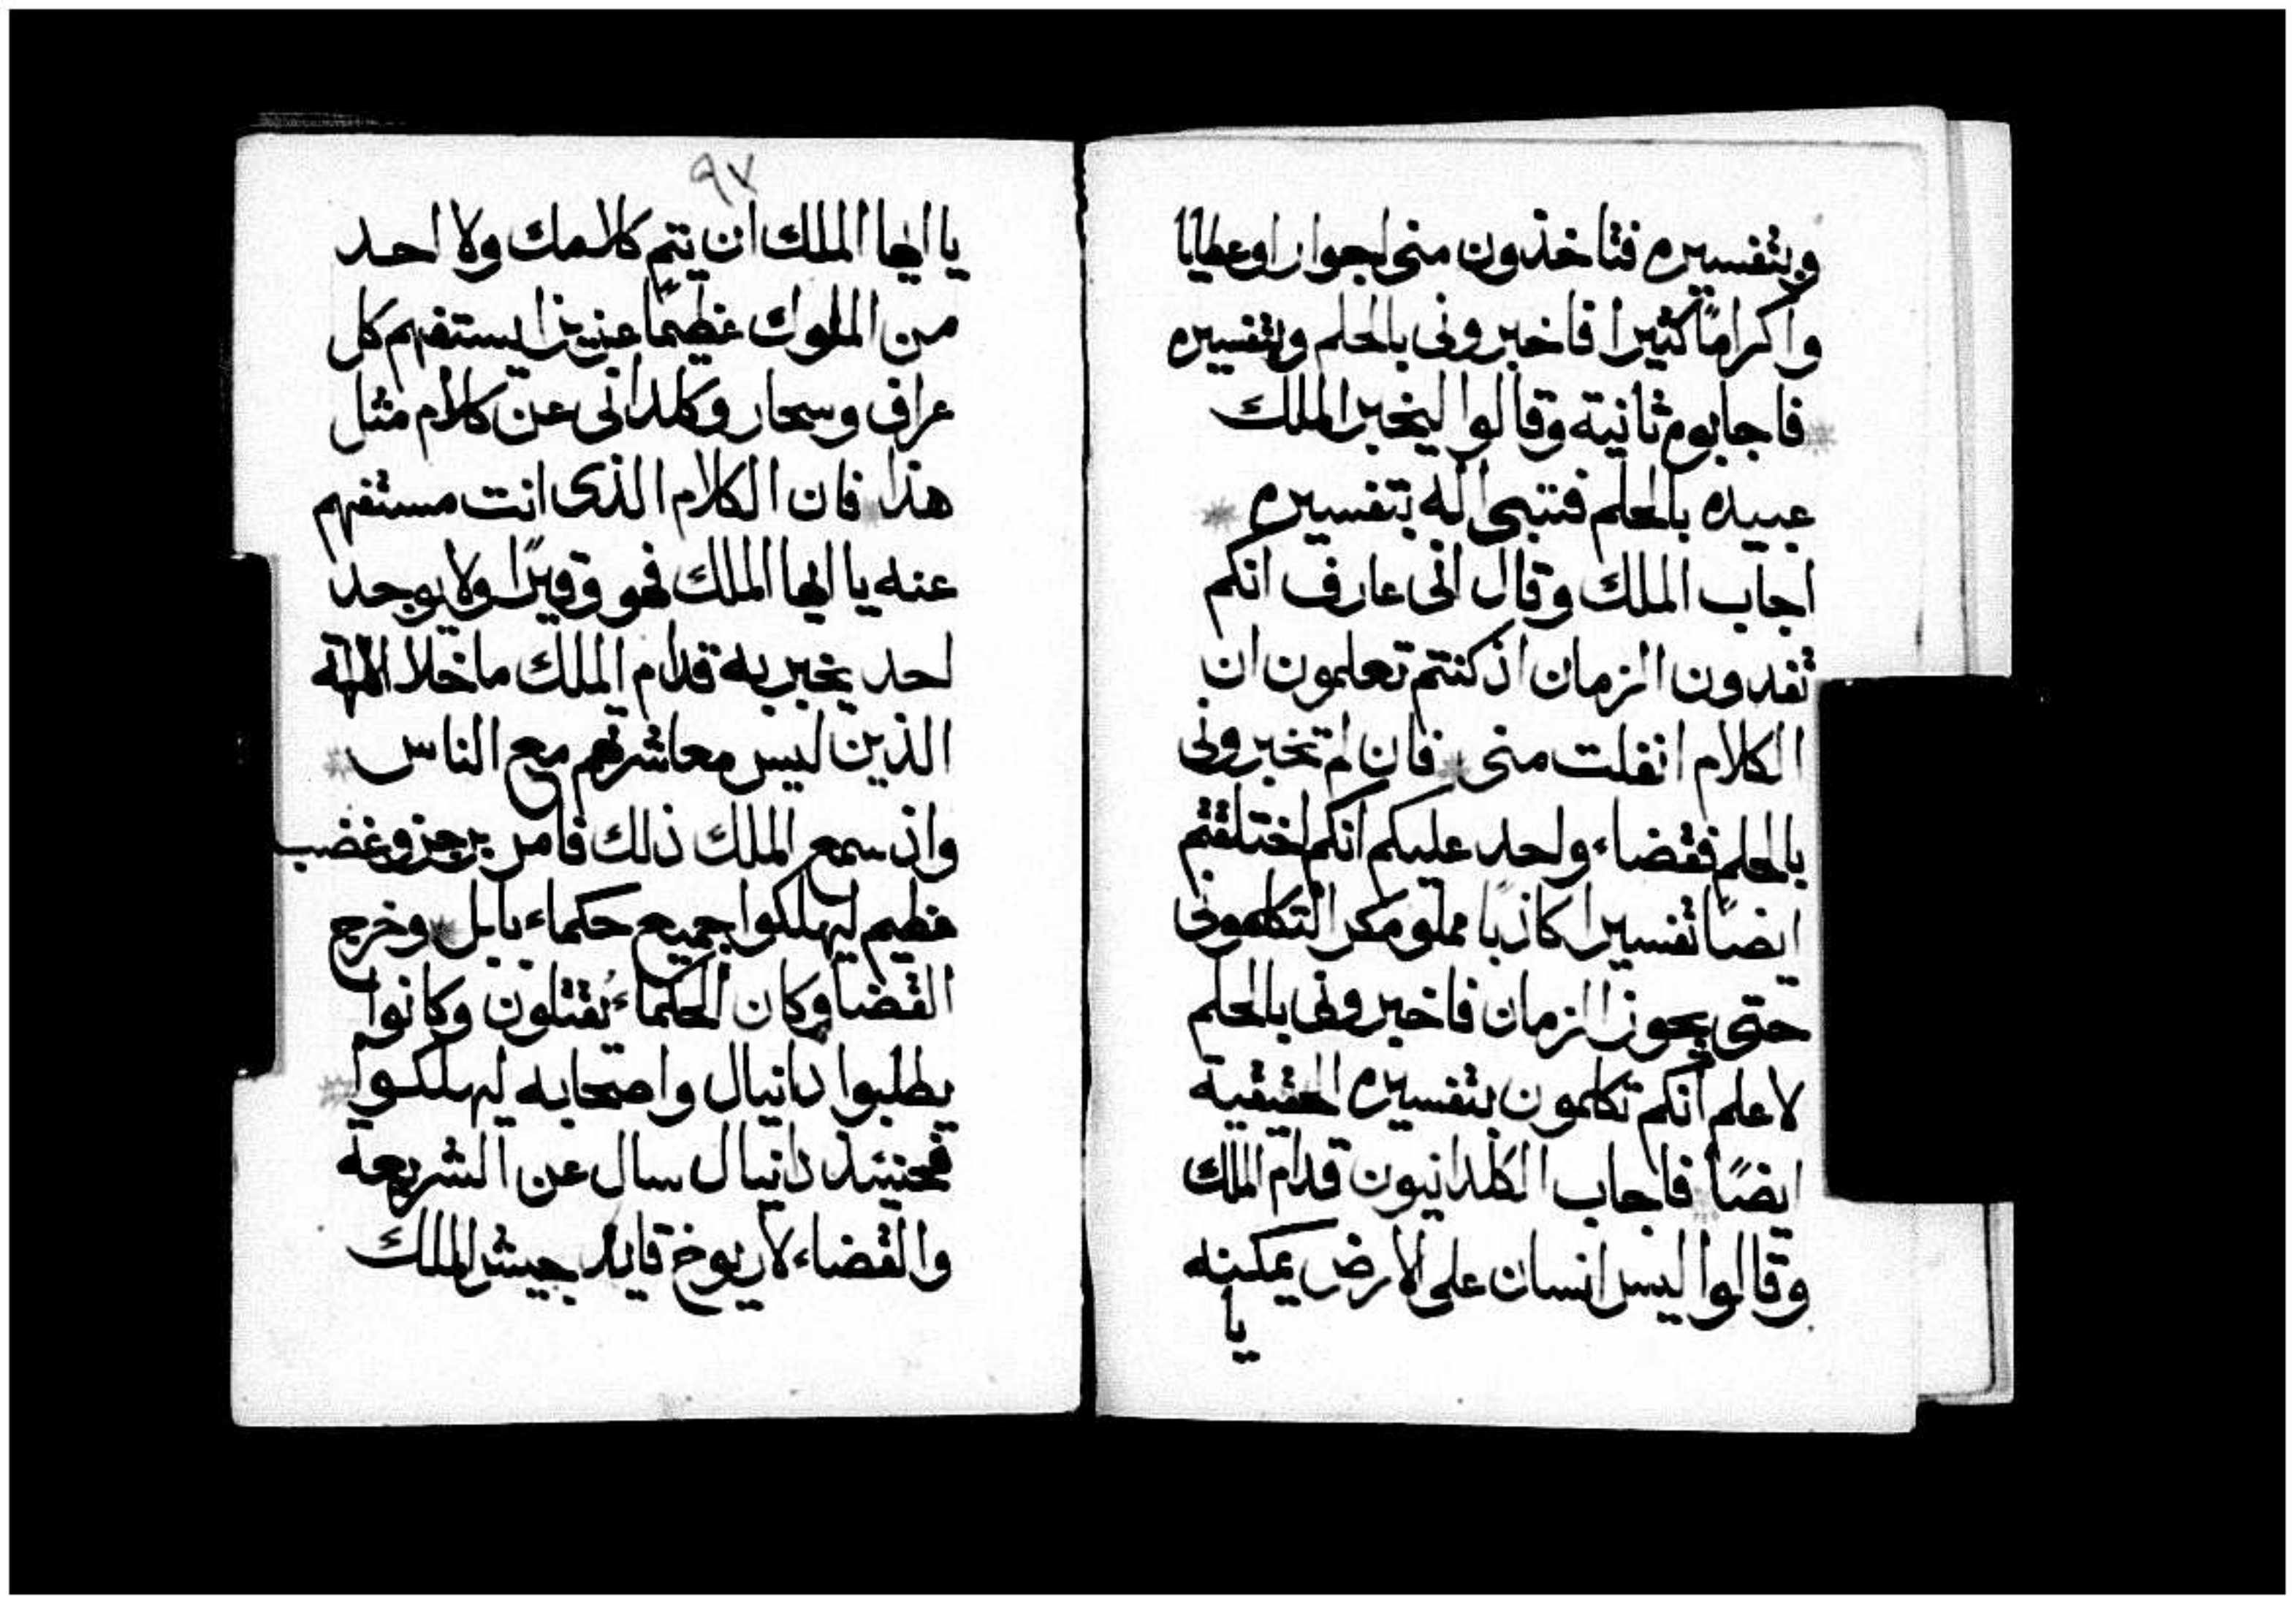 وبتفسيره فتاخذون مني اجوازا وعطايا
واكرامًا كثيرا فاخبروني بالحلم وبتفسيره
فاجابوه ثانية وقالوا ليخبر الملك
عبيده بالحلم فننبي له بتفسيره
اجاب الملك وقال اني عارف انكم
تفدون الزمان اذ كنتم تعلمون ان
الكلام انفلت مني فان لم تخبروني
بالحلم فقضاء واحد عليكم انكم اختلقتم
ايضًا تفسيرا كاذبًا مملو مكر التكلموني
حتى يجوز الزمان فاخبروني بالحلم
لاعلم انكم تكلمون بتفسيره الحقيقية
ايضًا فاجاب الكلدانيون قدام الملك
وقالوا ليس انسان على الارض يمكنه
يا
٩٧
يا ايها الملك ان يتم كلامك ولا احد
من الملوك عظيمًا عزيزا يستفهم كل
عراف وسحار وكلداني عن كلام مثل
هذا فان الكلام الذي انت مستفهم
عنه يا ايها الملك فهو وقيرًا ولا يوجد
احد يخبر به قدام الملك ما خلا الالهة
الذين ليس معاشرتهم مع الناس
واذ سمع الملك ذلك فامر برجز وغضب
عظيم ليهلكوا جميع حكماء بابل وخرج
القضا وكان الحكماء يُقتلون وكانوا
يطلبوا دانيال واصحابه ليهلكوا
فحينئذ دانيال سال عن الشريعة
والقضاء لاريوخ قايد جيش الملك